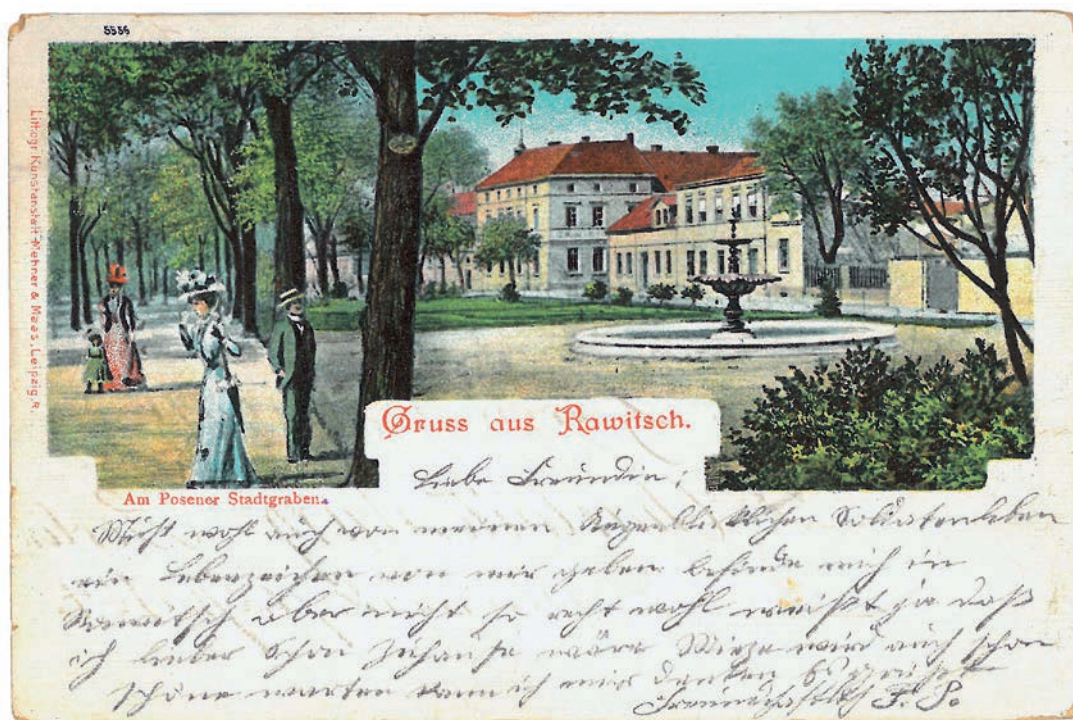 5536
Lithogr. Kunstanstalt Mehner & Maas, Leipzig. R.
Gruss aus Rawitsch.
Am Posener Stadtgraben.
Liebe Freundin!
wohl auch von meinen Augenblicklichen Soldatenleben
ein Lebenzeichen von mir geben befinde mich in
Rawitsch aber nicht so recht wohl weißt ja daß
ich lieber schon zuhause wäre wird auch schon
schöne warten kann ich mir denken Es grüßt
Freundschaftlich F. P.